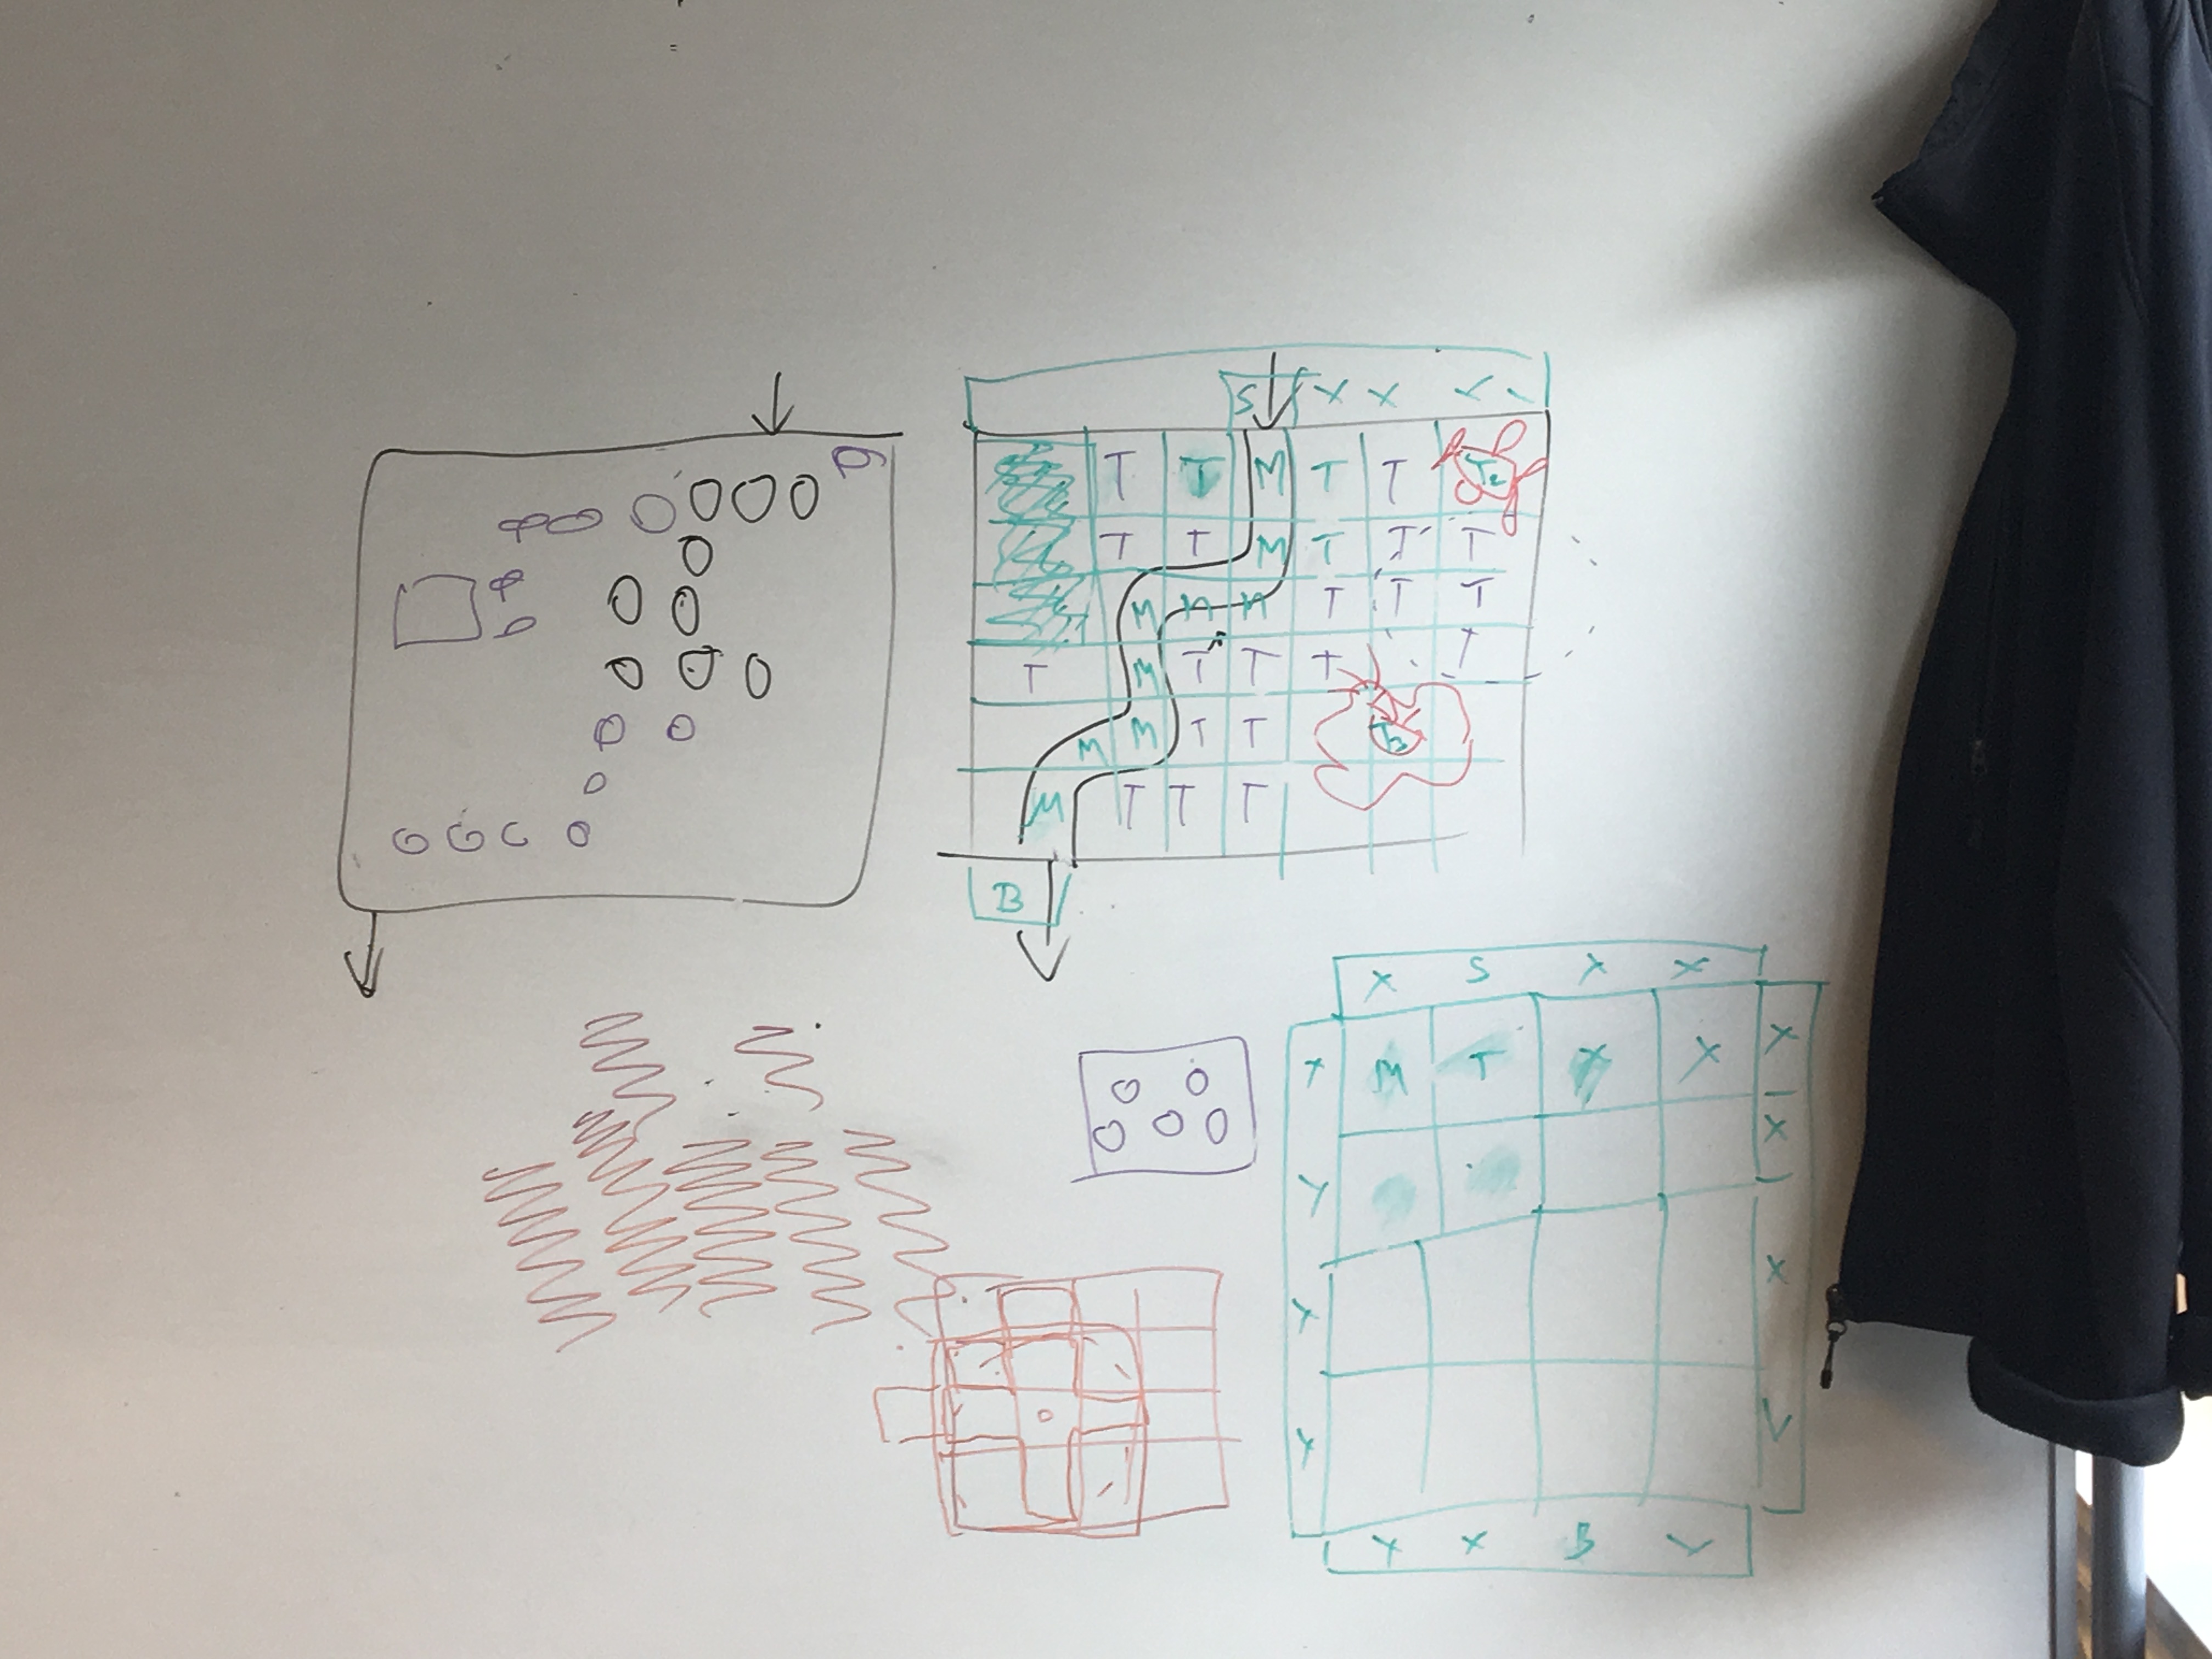 S X X
T T M T T T2
T T M T T T
M M M T T T
T M T T T T
M M T T T3
M T T T
B
X S X X
X M T X X X
Y X
X X
Y
Y X B Y